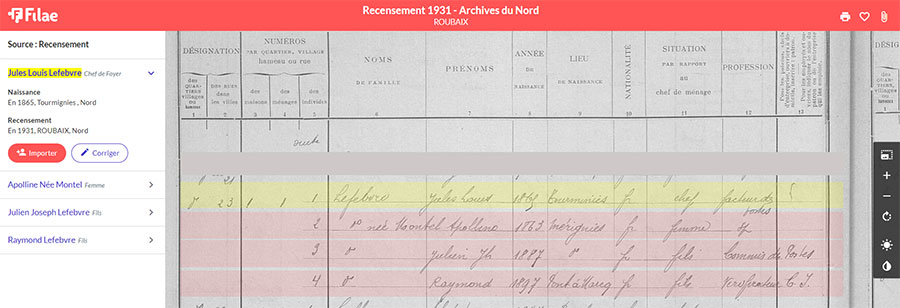 Filae
Recensement 1931 - Archives du Nord
ROUBAIX
Source : Recensement
Jules Louis Lefebvre Chef de Foyer
Naissance
En 1865, Tourmignies , Nord
Recensement
En 1931, ROUBAIX, Nord
Importer Corriger
Apolline Née Montel Femme
Julien Joseph Lefebvre Fils
Raymond Lefebvre Fils
DÉSIGNATION
NUMÉROS
PAR QUARTIER, VILLAGE
hameau ou rue
des
QUAR-
TIERS
villages
ou
hameaux
des rues
dans
les villes
des
maisons
des
ménages
des
individus
NOMS
DE FAMILLE
PRÉNOMS
ANNÉE
DE
NAISSANCE
LIEU
DE NAISSANCE
NATIONALITÉ
SITUATION
PAR RAPPORT
au
chef de ménage
PROFESSION
1 2 3 4 5 6 7 8 9 10 11 12 13
23 1 1 1 Lefebvre Jules Louis 1865 Tourmignies f chef facteur des postes
2 do née Montel Apolline 1863 Mérignies f femme sp
3 do Julien Jh 1887 do f fils Commis des Postes
4 do Raymond 1897 Pont à Marcq f fils Vérificateur
DÉSIG